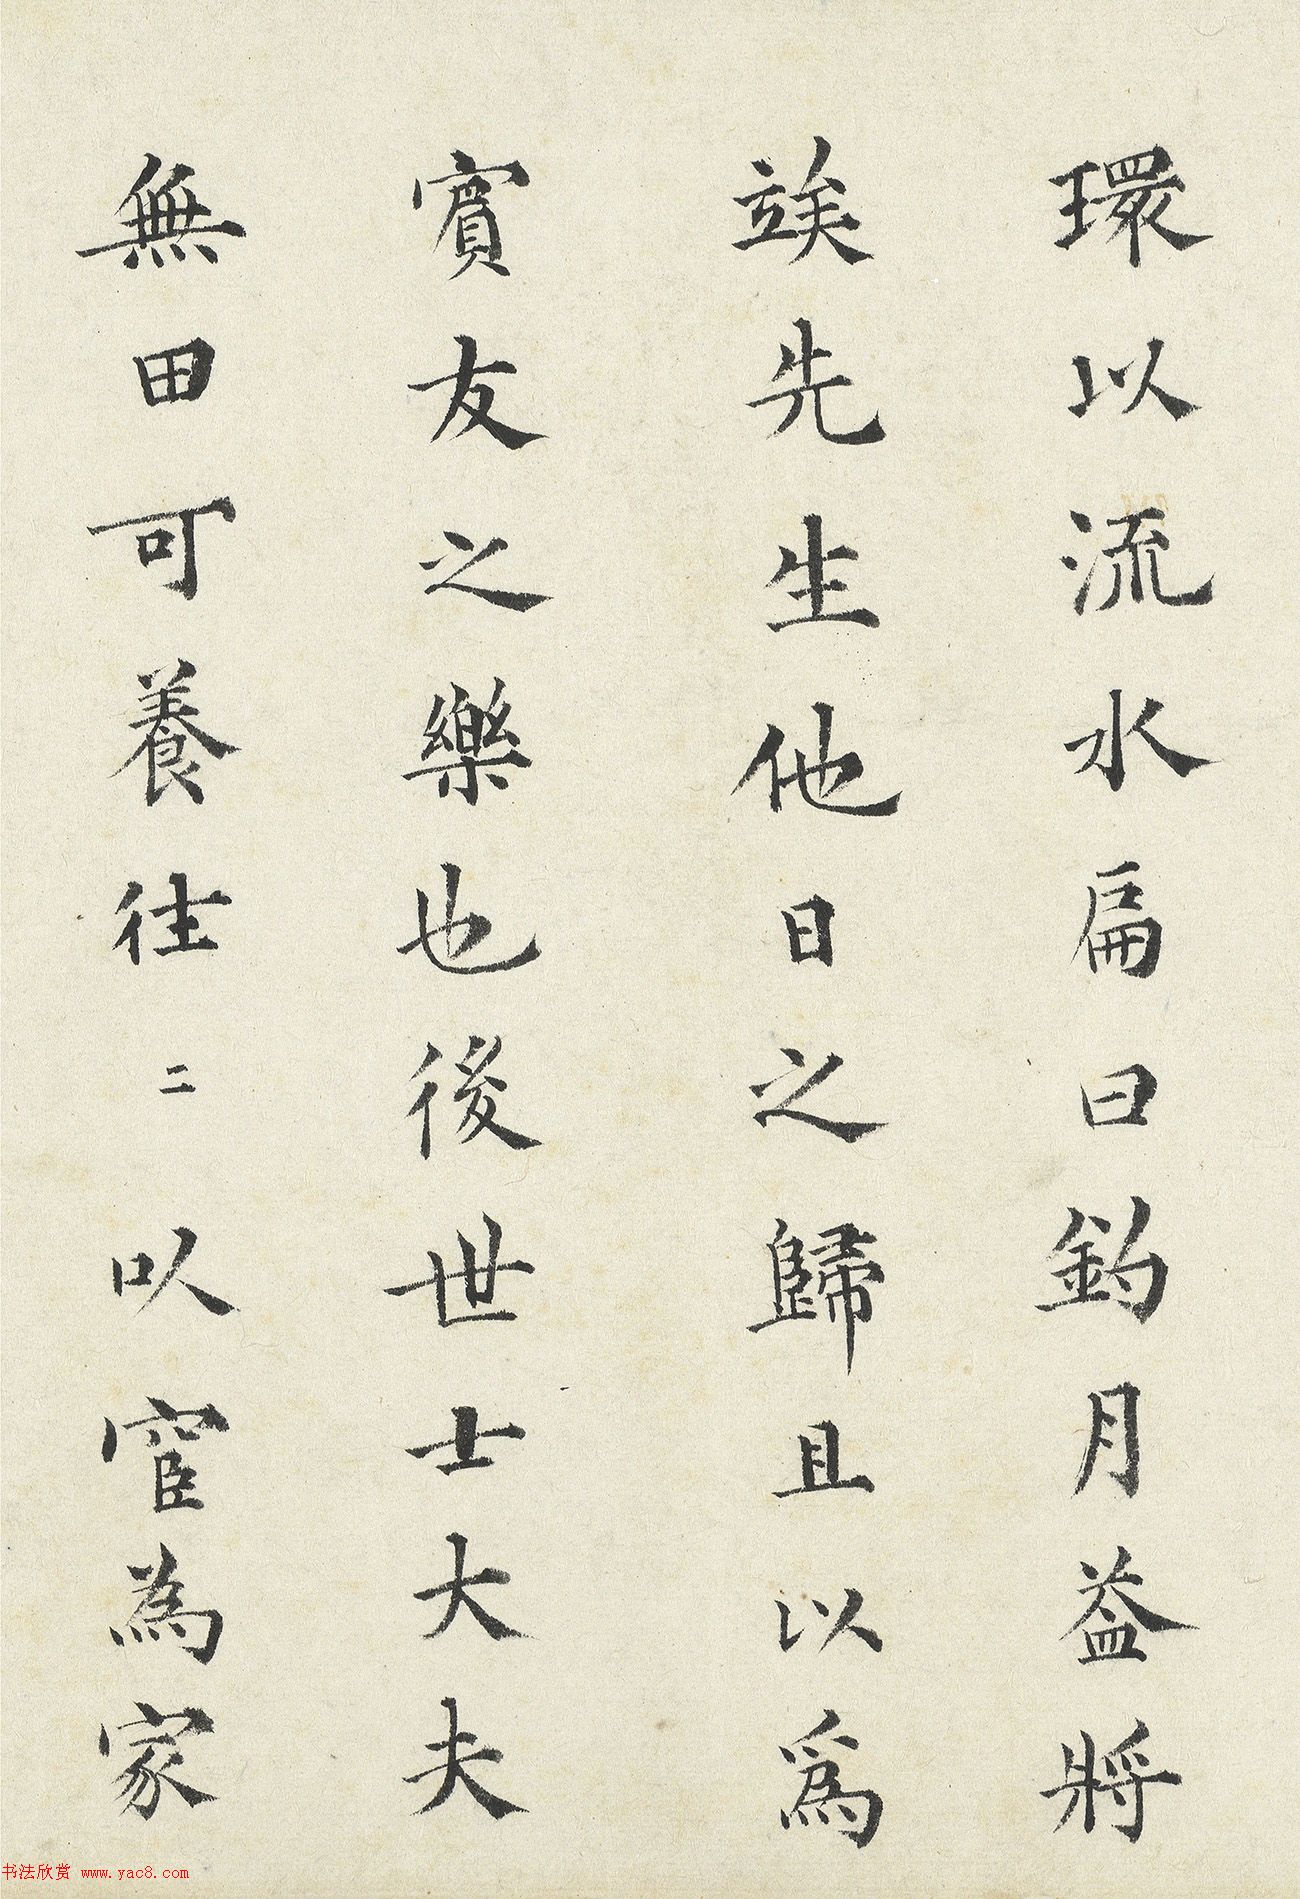 環以流水扁曰釣月益將
竢先生他日之歸且以爲
賔友之樂也後世士大夫
無田可養徃二以宦為家
书法欣赏 www.yac8.com